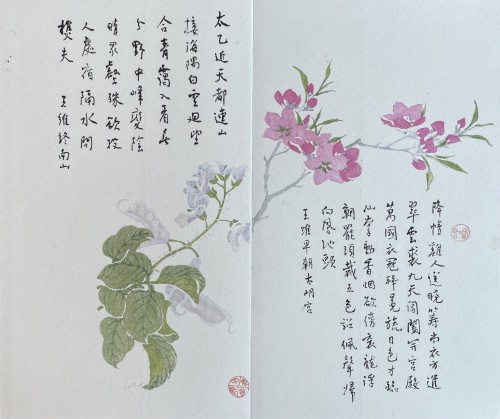 降幘雞人送曉籌尚衣方進
翠雲裘九天閶闔開宮殿
萬國衣冠拜冕旒日色才臨
仙掌動香烟欲傍袞龍浮
朝罷須裁五色詔佩聲歸
向鳳池頭
王維早朝大明宮
太乙近天都連山
接海隅白雲迴望
合青靄入看無
分野中峰變陰
晴眾壑殊欲投
人處宿隔水問
樵夫 王維終南山